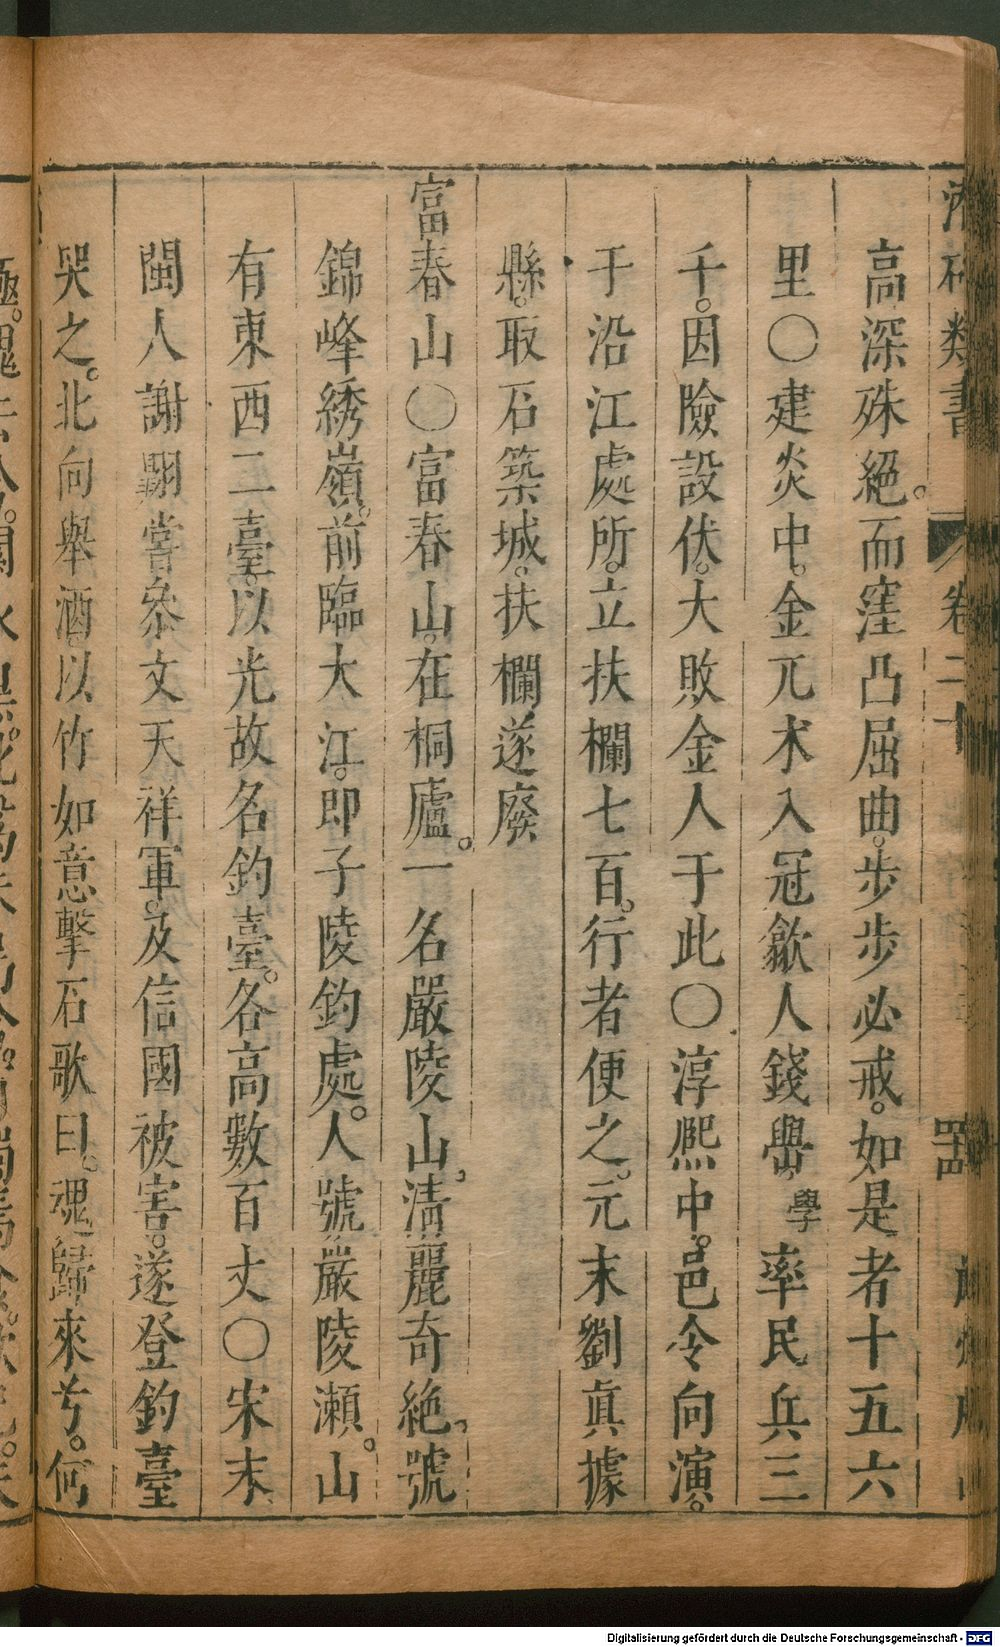 類書 卷二十
高深殊絕。而窪凸屈曲。步步必戒。如是者十五六
里〇建炎中。金兀朮入冦歙人錢㽦學率民兵三
千。因險設伏。大敗金人于此〇淳熈中。邑令向演。
于沿江處所。立扶欄七百。行者便之。元末劉眞據
縣。取石築城。扶欄遂廢
富春山〇富春山。在桐廬。一名嚴陵山。淸麗奇絶。號
錦峰綉嶺。前臨大江。卽子陵釣處。人號嚴陵瀨。山
有東西二臺。以光故名釣臺。各高數百丈〇宋末
閩人謝翺嘗叅文天祥軍。及信國被害。遂登釣臺
哭之。北向舉酒。以竹如意擊石歌曰。魂歸來兮。何
Digitalisierung gefördert durch die Deutsche Forschungsgemeinschaft - DFG